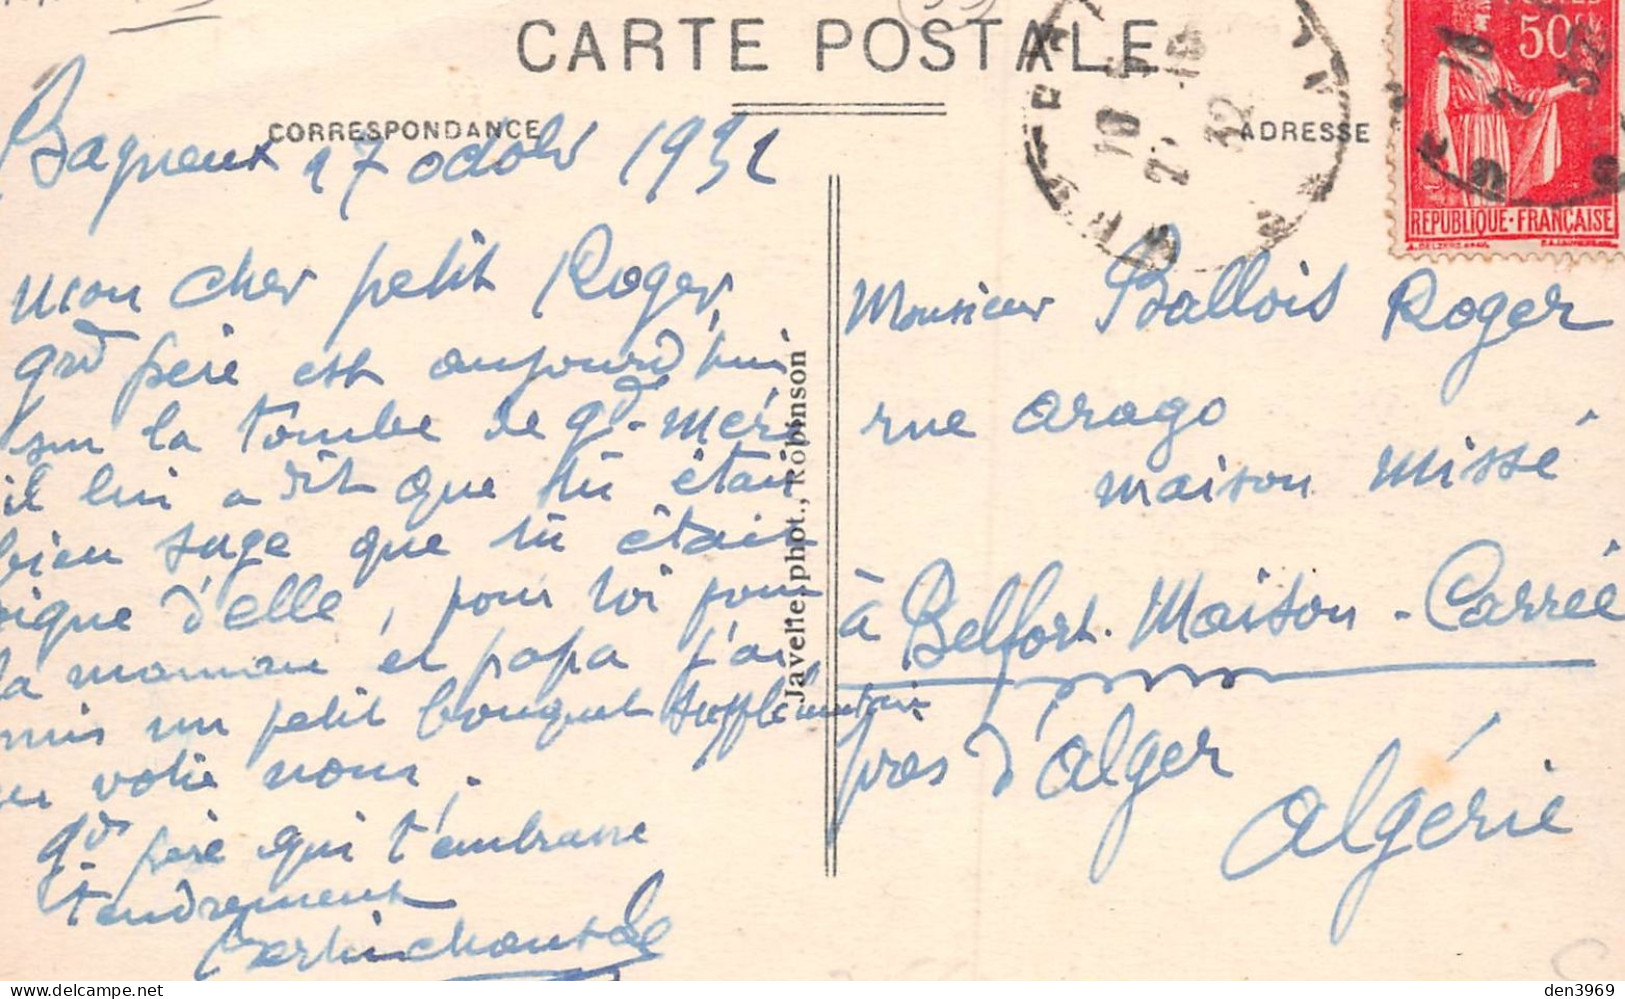 CARTE POSTALE
CORRESPONDANCE
ADRESSE
Bagneux 17 octobre 1932
Mon cher petit Roger,
grd père est aujourd'hui
sur la tombe de gde-mère
il lui a dit que tu étais
bien sage que tu étais
digne d'elle, pour toi pour
la maman et papa j'ai
mis un petit bouquet supplémentaire
en votre nom.
grd père qui t'embrasse
tendrement
Javelle, phot., Robinson
Monsieur Ballois Roger
rue Arago
maison Missé
à Belfort. Maison-Carrée
près d'Alger
Algérie
50
REPUBLIQUE·FRANÇAISE
den3969